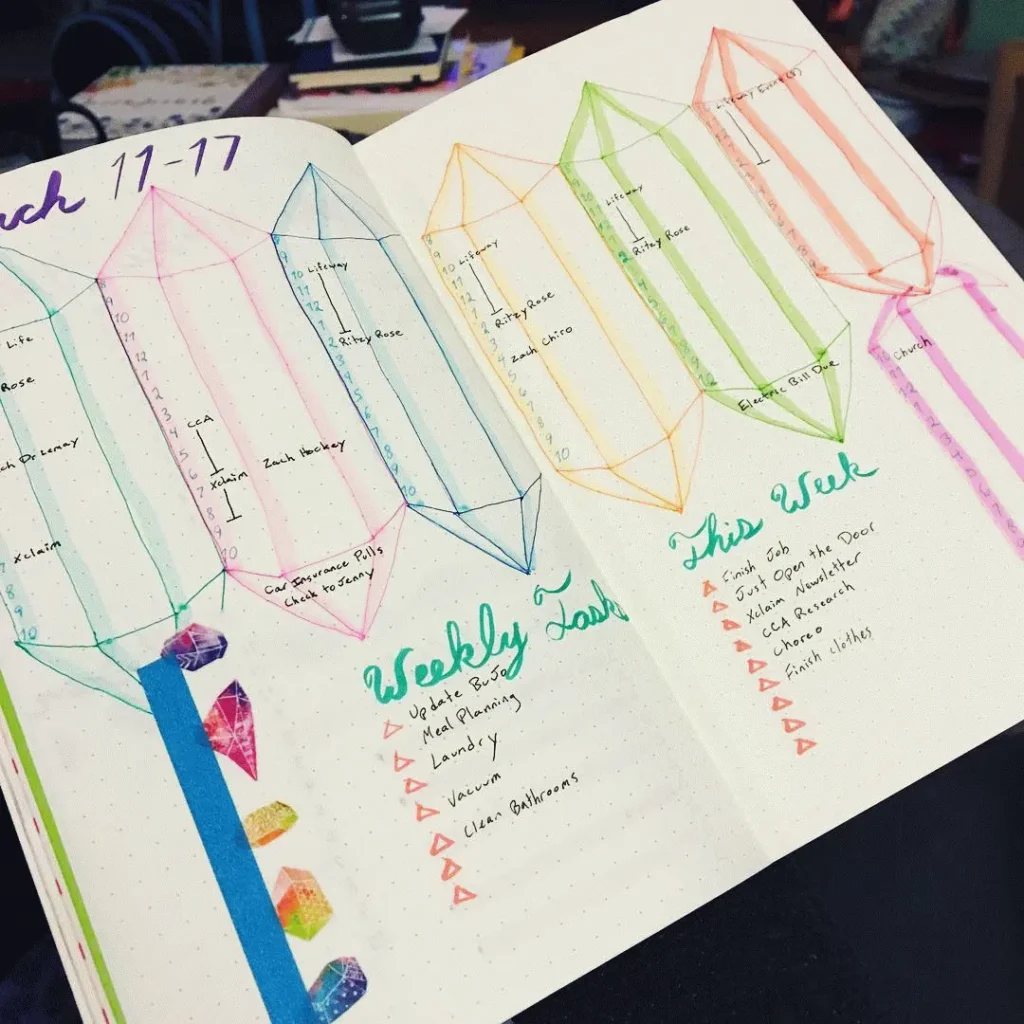 11-17
Life
Rose
Xclaim
8
9
10
8
9
10
11
12
1
2
3
4
5
6
7
8
9
10
CCA
Xclaim
Zach Hockey
Car Insurance Pulls
Check to Jenny
8
9
10 Lifeway
11
12
1
2 Ritzy Rose
3
4
5
6
7
8
9
10
8
9
10 Lifeway
11
12
1
2 Ritzy Rose
3
4 Zach Chiro
5
6
7
8
9
10
Lifeway
2 Ritzy Rose
Electric Bill Due
Lifeway
10 Church
11
12
1
2
3
Weekly Task
Update BuJo
Meal Planning
Laundry
Vacuum
Clean Bathrooms
This Week
Finish Job
Just Open the Door
Xclaim Newsletter
CCA Research
Choreo
Finish clothes